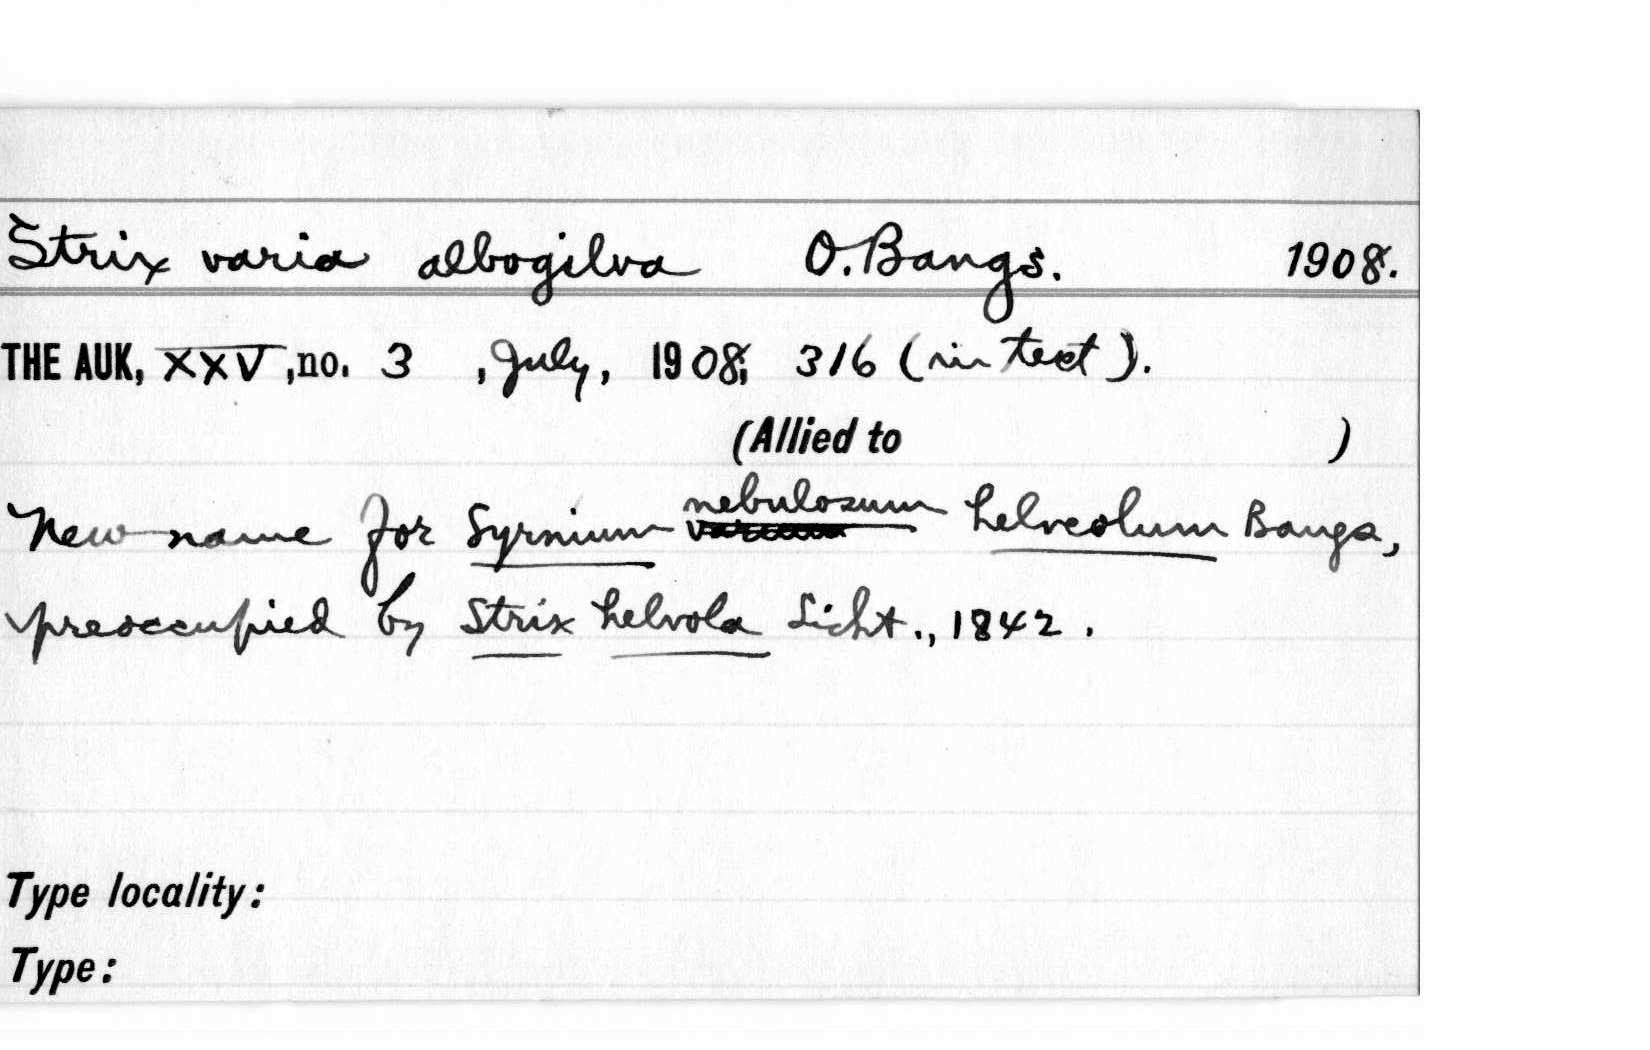 Strix varia albogilva O. Bangs. 1908.
THE AUK, XXV, no. 3, July, 1908; 316 (in text).
(Allied to )
nebulosum
New name for Syrnium helveolum Bangs,
preoccupied by Strix helvola Licht., 1842.
Type locality:
Type: